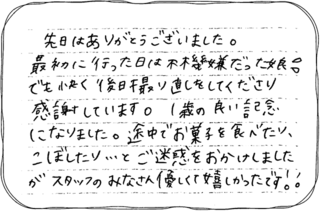 先日はありがとうございました。
最初に行った日は不機嫌だった娘
でも快く後日撮り直しをしてくださり
感謝しています。1歳の良い記念
になりました。途中でお菓子を食べたり、
こぼしたり…とご迷惑をおかけしました
がスタッフのみなさん優しくて嬉しかったです!!